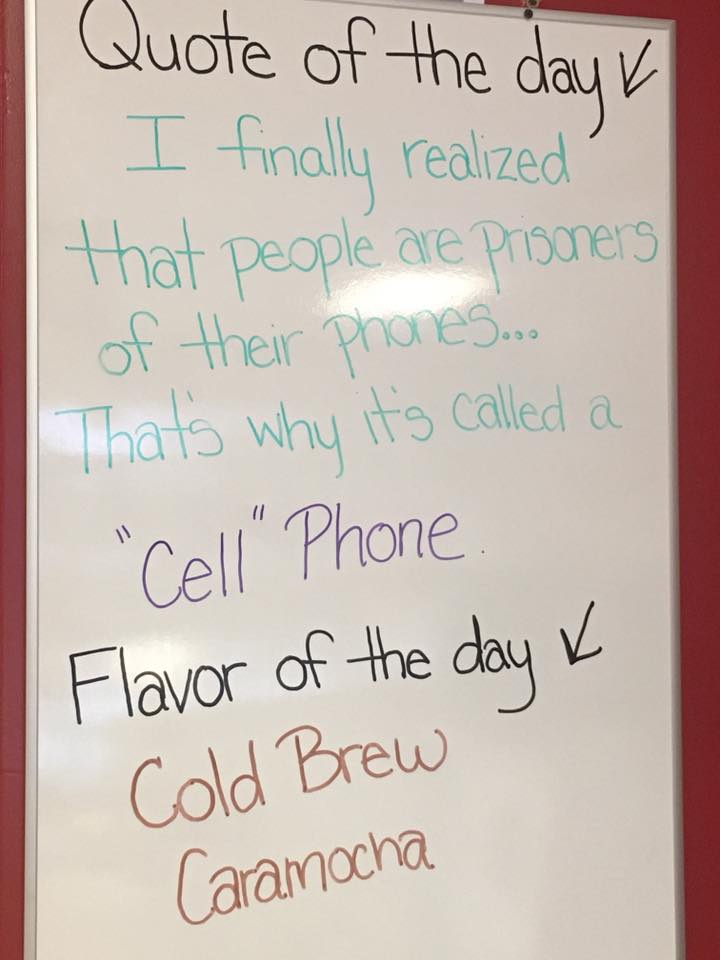 Quote of the day ↙
I finally realized
that people are prisoners
of their phones...
That's why it's called a
"Cell" Phone.
Flavor of the day ↙
Cold Brew
Caramocha